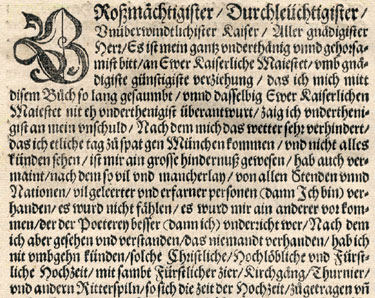 GRoßmächtigister / Durchleüchtigister /
Vnüberwundtlichister Kaiser / Aller gnädigister
Herr / Es ist mein gantz vnderthänig vnnd gehorsa-
mist bitt / an Ewer Kaiserliche Maiestet / vmb gnä-
digiste günstigiste verziehung / das ich mich mitt
disem Büch so lang gesaumbt / vnnd dasselbig Ewer Kaiserlichen
Maiestet nit eh vnderthenigist überantwurt / zaig ich vndertheni-
gist an mein vnschuld / Nach dem mich das wetter sehr verhindert /
das ich etliche tag zů spat gen München kommen / vnd nicht alles
künden sehen / ist mir ain grosse hindernuß gewesen / hab auch ver-
maint / nach dem so vil vnd mancherlay / von allen Stenden vnnd
Nationen / vil geleerter vnd erfarner personen (dann Jch bin) ver-
handen / es wurd nicht fählen / es wurd mir ain anderer vor kom-
men / der der Poeterey besser (dann ich) vnderricht wer / Nach dem
ich aber gesehen vnd verstanden / das niemandt verhanden / hab ich
nit vmbgehn künden / solche Christliche / Hochlöbliche vnd Fürst-
liche Hochzeit / mit sambt Fürstlicher zier / Kirchgäng / Thurnier /
vnd andern Ritterspiln / so sich die zeit der Hochzeit / zůgetragen vñ